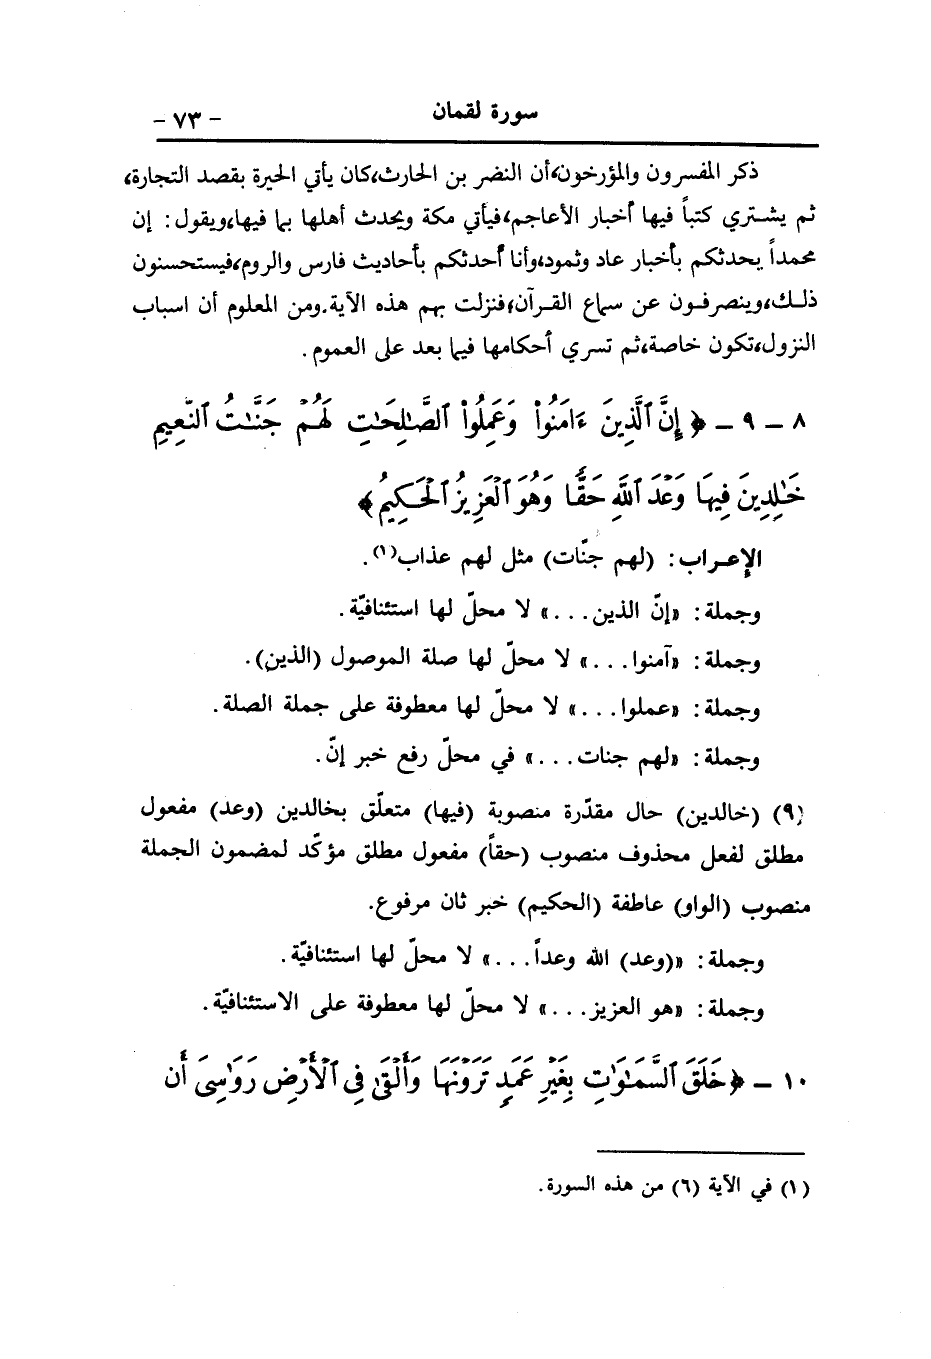 سورة لقمان - ٧٣ -
ذكر المفسرون والمؤرخون،أن النضر بن الحارث،كان يأتي الحيرة بقصد التجارة،
ثم يشتري كتباً فيها أخبار الأعاجم،فيأتي مكة ويحدث أهلها بما فيها،ويقول: إن
محمداً يحدثكم بأخبار عاد وثمود،وأنا أحدثكم بأحاديث فارس والروم،فيستحسنون
ذلك،وينصرفون عن سماع القرآن،فنزلت بهم هذه الآية.ومن المعلوم أن اسباب
النزول،تكون خاصة،ثم تسري أحكامها فيما بعد على العموم.
٨ - ٩ - ﴿إِنَّ ٱلَّذِينَ ءَامَنُواْ وَعَمِلُواْ ٱلصَّٰلِحَٰتِ لَهُمْ جَنَّٰتُ ٱلنَّعِيمِ
خَٰلِدِينَ فِيهَا وَعْدَ ٱللَّهِ حَقًّا وَهُوَ ٱلْعَزِيزُ ٱلْحَكِيمُ﴾
الإعراب: (لهم جنّات) مثل لهم عذاب(١).
وجملة: «إنّ الذين...» لا محلّ لها استئنافيّة.
وجملة: «آمنوا...» لا محلّ لها صلة الموصول (الذين).
وجملة: «عملوا...» لا محلّ لها معطوفة على جملة الصلة.
وجملة: «لهم جنات...» في محلّ رفع خبر إنّ.
(٩) (خالدين) حال مقدّرة منصوبة (فيها) متعلّق بخالدين (وعد) مفعول
مطلق لفعل محذوف منصوب (حقاً) مفعول مطلق مؤكّد لمضمون الجملة
منصوب (الواو) عاطفة (الحكيم) خبر ثان مرفوع.
وجملة: «(وعد) الله وعداً...» لا محلّ لها استئنافيّة.
وجملة: «هو العزيز...» لا محلّ لها معطوفة على الاستئنافيّة.
١٠ - ﴿خَلَقَ ٱلسَّمَٰوَٰتِ بِغَيْرِ عَمَدٍ تَرَوْنَهَا وَأَلْقَىٰ فِي ٱلْأَرْضِ رَوَٰسِيَ أَن
(١) في الآية (٦) من هذه السورة.